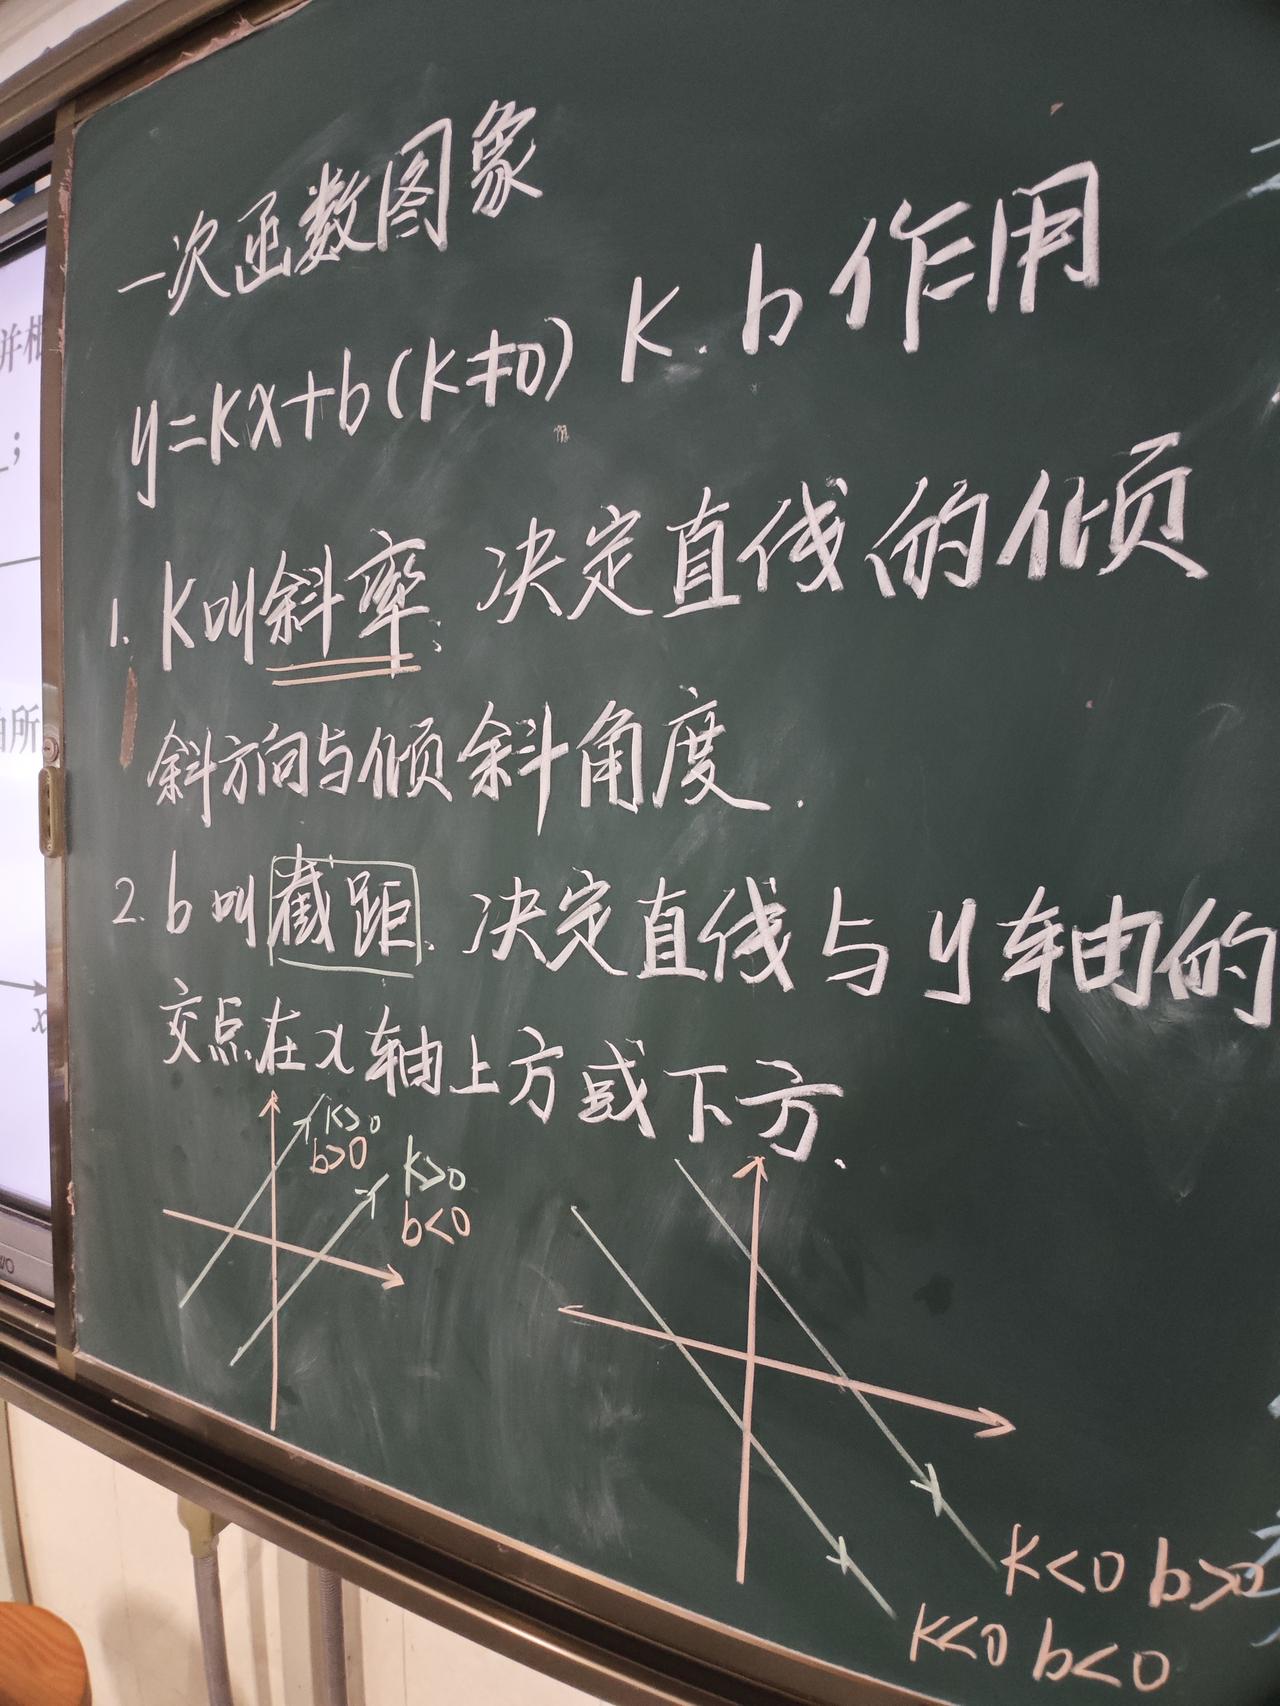 并相
一次函数图象
y=kx+b(k≠0) k.b作用
1. k叫斜率: 决定直线的倾
斜方向与倾斜角度.
2. b叫截距. 决定直线与y轴的
交点在x轴上方或下方.
k>0
b>0
k>0
b<0
k<0 b>0
k<0 b<0
;
所
x